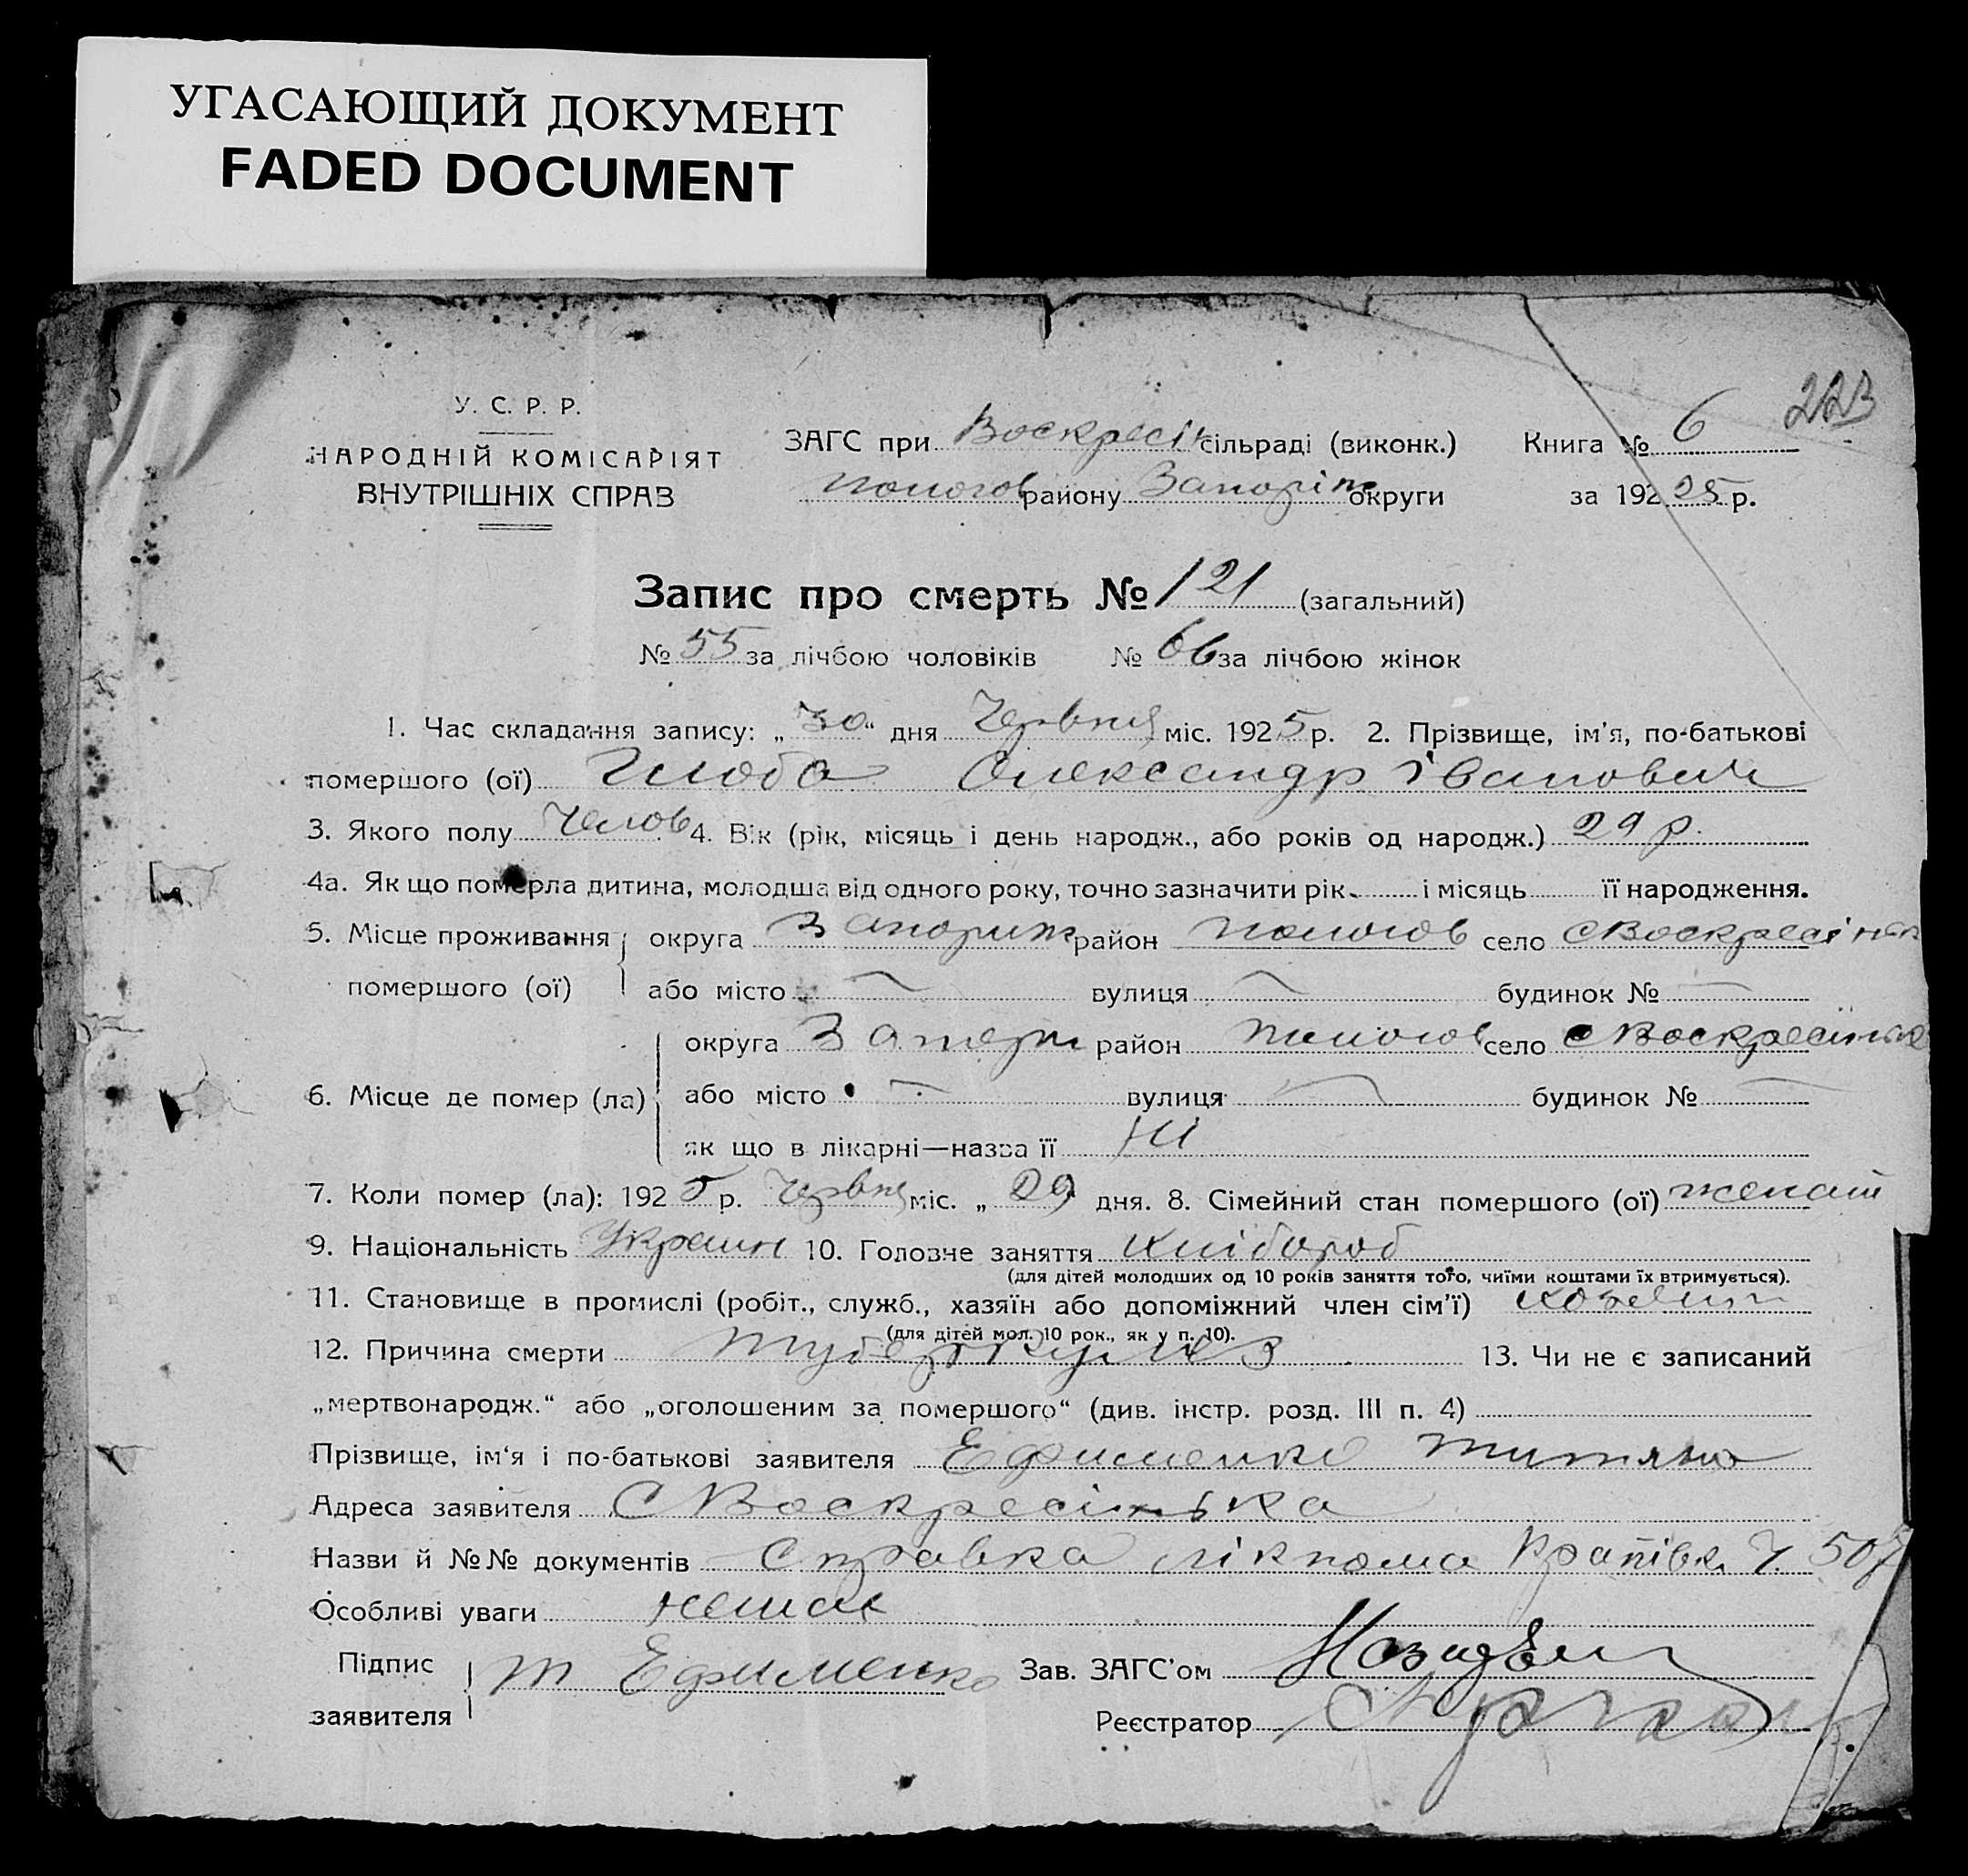 УГАСАЮЩИЙ ДОКУМЕНТ
FADED DOCUMENT
223
У. С. Р. Р.
НАРОДНІЙ КОМІСАРІЯТ
ВНУТРІШНІХ СПРАВ
ЗАГС при Воскресін сільраді (виконк.) Книга № 6
Пологов району Запоріж округи за 192 25 р.
Запис про смерть № 121 (загальний)
№ 55 за лічбою чоловіків № 66 за лічбою жінок
1. Час складання запису: „30“ дня Червня міс. 1925 р. 2. Прізвище, ім'я, по-батькові
помершого (ої) Глоба Олександр Іванович
3. Якого полу Челов 4. Вік (рік, місяць і день народж., або років од народж.) 29 р.
4а. Як що померла дитина, молодша від одного року, точно зазначити рік і місяць її народження.
5. Місце проживання округа Запориж район Пологов село с Воскресінка
помершого (ої) або місто — вулиця — будинок № —
округа Запор район Пологов село с Воскресінка
6. Місце де помер (ла) або місто — вулиця — будинок № —
як що в лікарні—назва її Ні
7. Коли помер (ла): 1925 р. Червня міс. „ 29 дня. 8. Сімейний стан помершого (ої) женат
9. Національність Украин 10. Головне заняття хлібороб
(для дітей молодших од 10 років заняття того, чиїми коштами їх втримується).
11. Становище в промислі (робіт., служб., хазяїн або допоміжний член сім'ї)
(для дітей мол. 10 рок., як у п. 10).
12. Причина смерти туберкульоз 13. Чи не є записаний
„мертвонародж.“ або „оголошеним за помершого“ (див. інстр. розд. III п. 4)
Прізвище, ім'я і по-батькові заявителя Ефименко Титяна
Адреса заявителя С Воскресінька
Назви й №№ документів Справка лікпома Ч. 507
Особливі уваги немае
Підпис
заявителя Т Ефименко Зав. ЗАГС'ом
Реєстратор